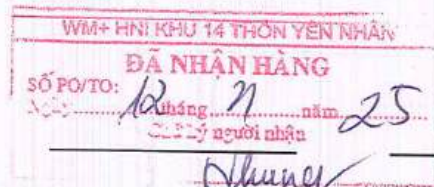 WM+ HNI KHU 14 THÔN YÊN NHÂN
ĐÃ NHẬN HÀNG
SỐ PO/TO:
Ngày 12 tháng 11 năm 25
người nhận
Nhung